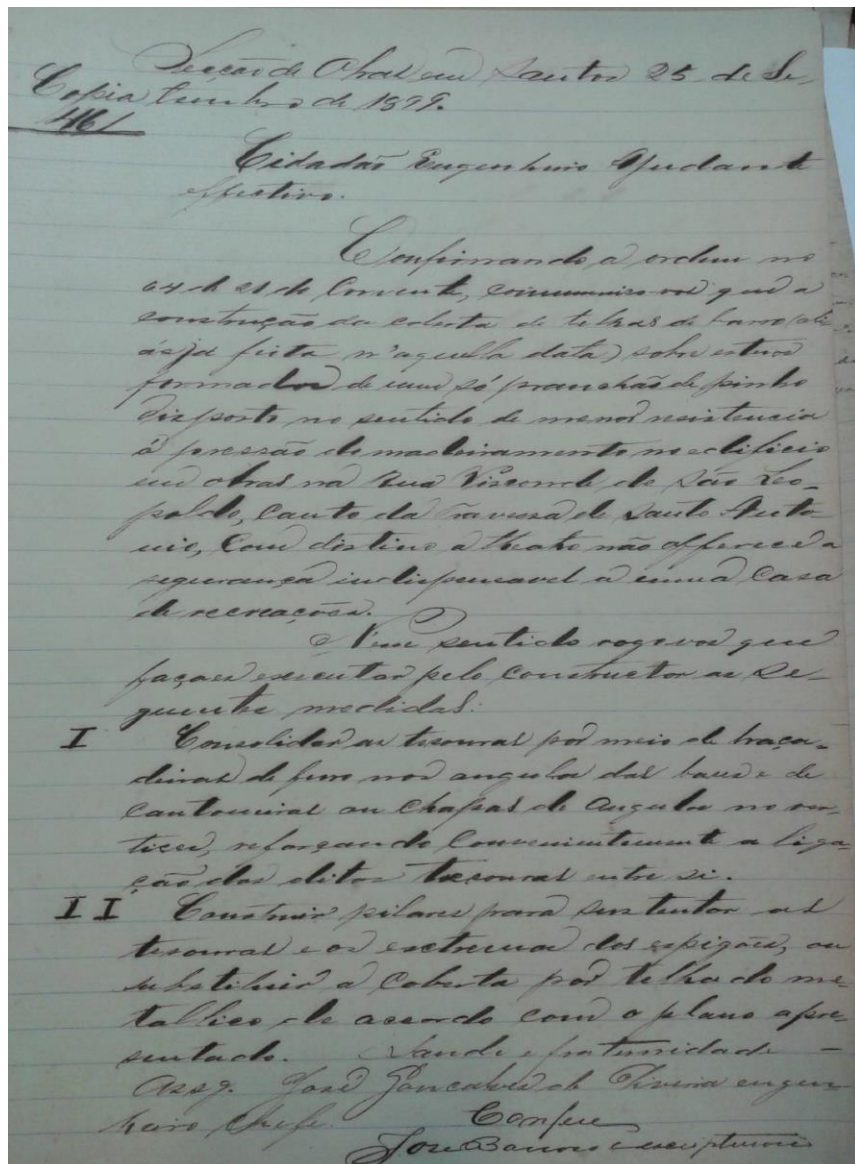 Secção de Obras em Santos 25 de Se-
Copia tembro de 1899.
461
Cidadão Engenheiro Ajudante
effectivo.
Confirmando a ordem no
64 de 21 do Corrente, communico-vos que a
construcção da coberta de telhas de barro (ali
ás já feita n'aquella data) sobre esteios
formados de um só pranchão de pinho
disposto no sentido de menor resistencia
á pressão do madeiramento no edificio
em obras na Rua Visconde de São Leo-
poldo, Canto da Travessa de Santo Anto-
nio, Com destino a theatro não offerece a
segurança indispensavel a uma Casa
de recreações.
N'esse sentido rogo-vos que
façaes executar pelo Constructor as se-
guintes medidas:
I Consolidar as tesouras por meio de braça-
deiras de ferro nos angulos das bases e de
Cantoneiras ou Chapas de Angulo no ver-
tice, reforçando Convenientemente a liga-
ção das ditas tesouras entre si.
II Construir pilares para sustentar as
tesouras e os extremos dos espigões, ou
substituir a Coberta por telhado me-
tallico de accordo com o plano apre-
sentado. Saude e fraternidade -
Assg. José Gonçalves de Oliveira engen-
heiro Chefe.
Confere
José Barros escripturario